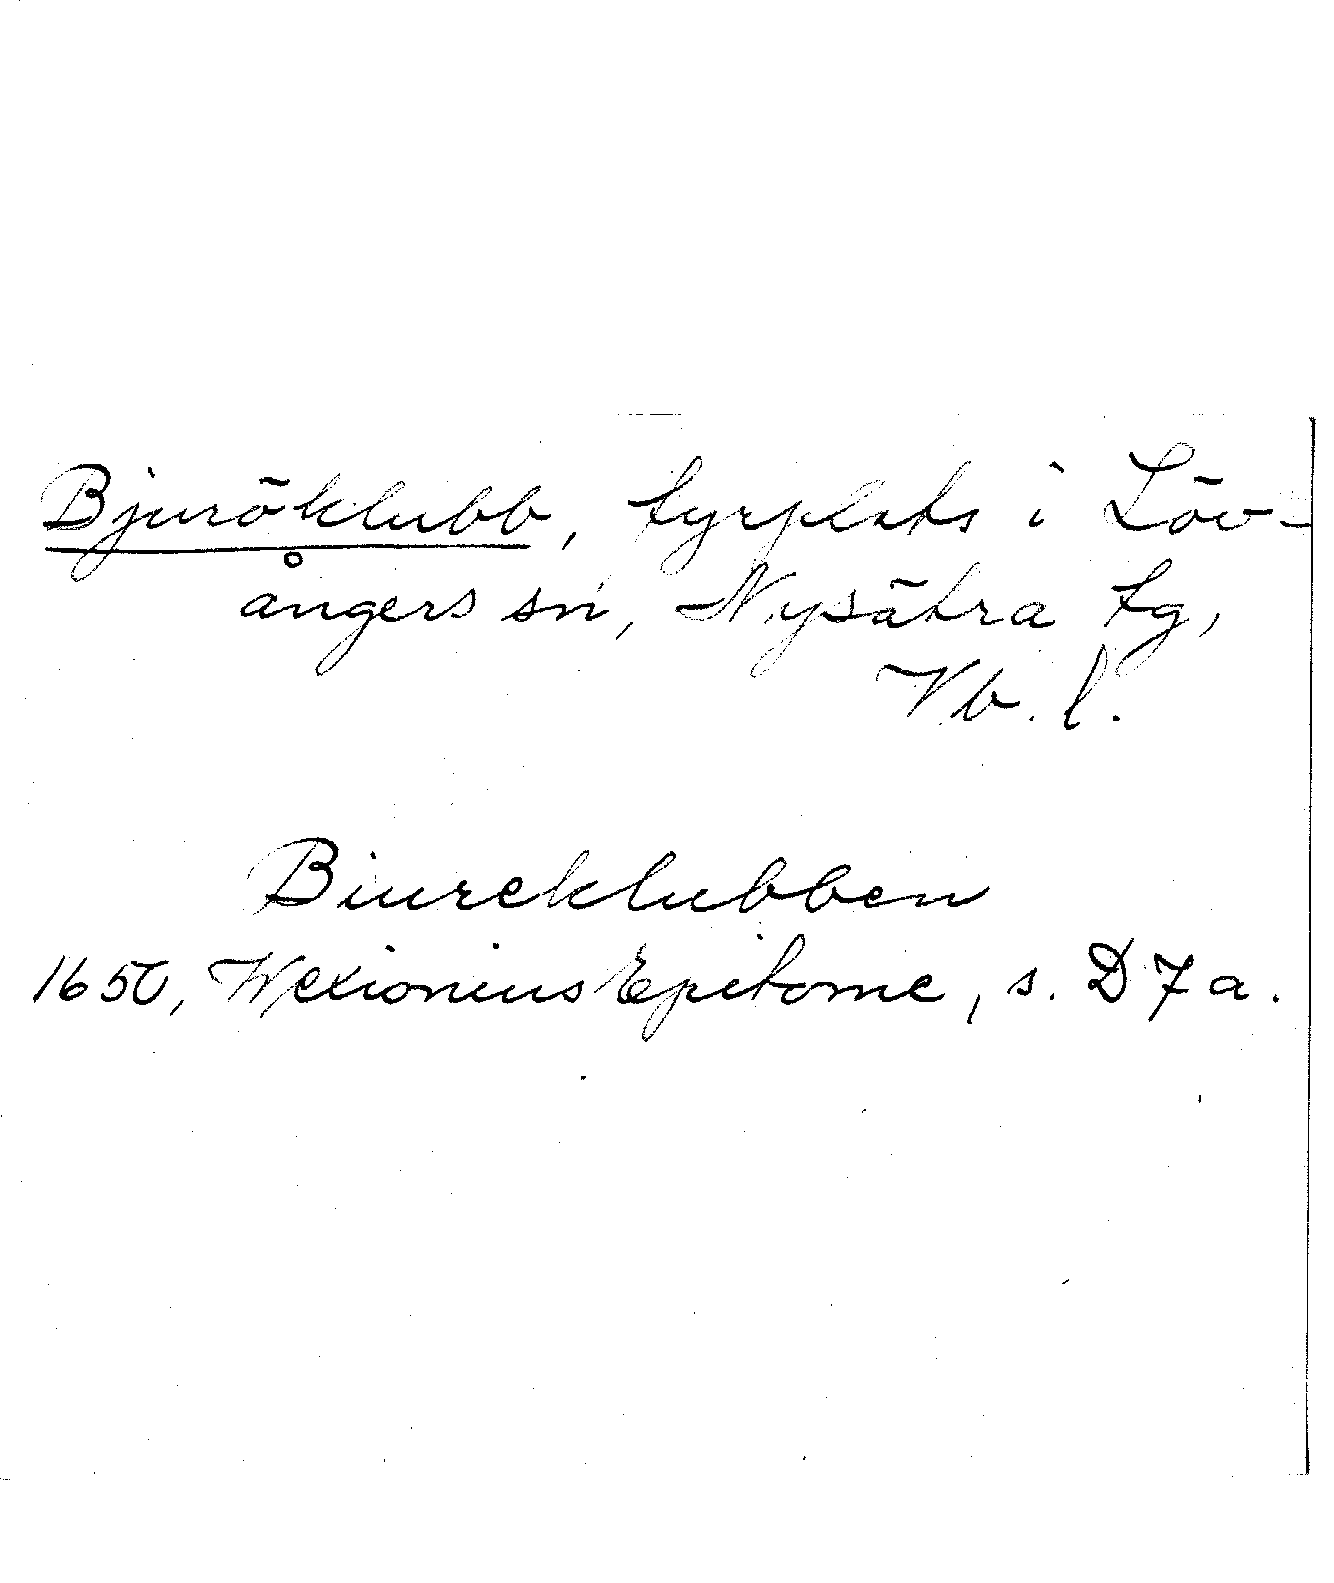 Bjuröklubb, fyrplats i Löv-
ångers sn, Nysätra tg,
Vb. l.
Biureklubben
1650, Wexionius Epitome, s. D7a.